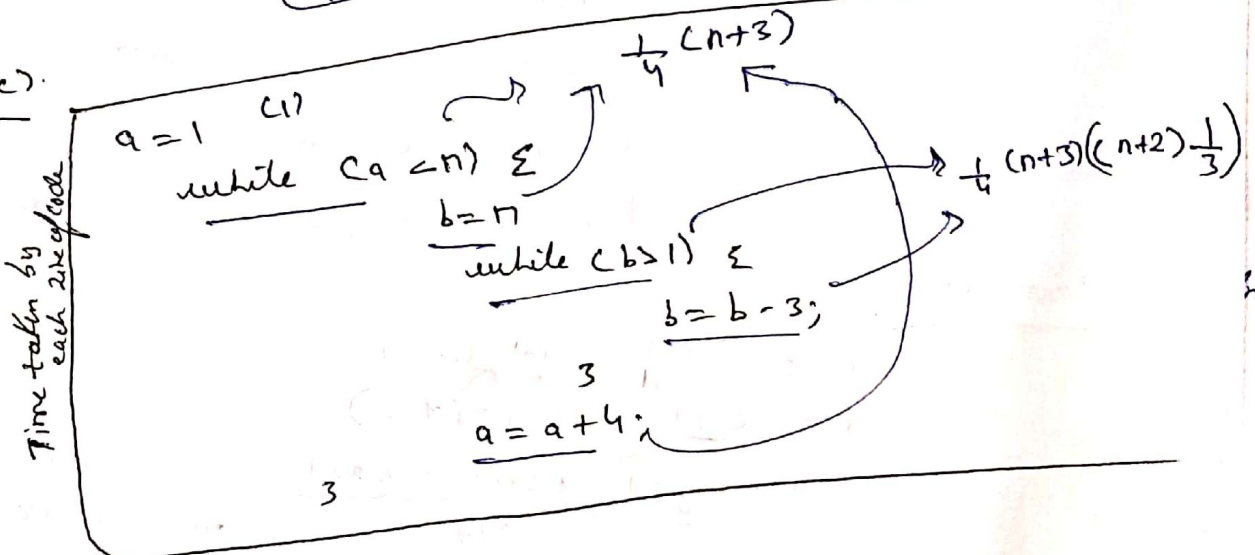 c).
Time taken by
each line of code
a = 1 (1)
while (a < n) {
1/4 (n+3)
b = n
while (b > 1) {
1/4 (n+3)((n+2) 1/3)
b = b - 3;
}
a = a + 4;
}